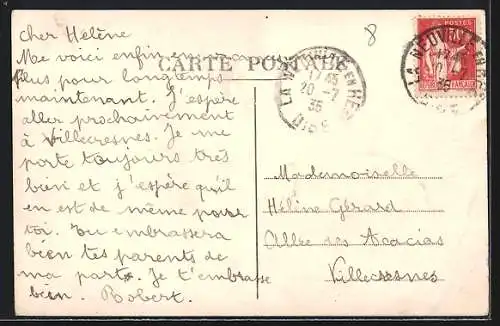 cher Helène
8
Me voici enfin en
CARTE POSTALE
plus pour longtemps
maintenant. J'espère
aller prochainement
à Villecresnes. Je me
porte toujours très
bien et j'espère qu'il
en est de même pour
toi. Tu embrassera
bien tes parents de
ma part. Je t'embrasse
bien. Robert.
POSTES
LA NEUVILLE EN HEZ
17 45
20 -7
35
OISE
LA NEUVILLE EN HEZ
35
OISE
Mademoiselle
Hélène Gérard
Allée des Acacias
Villecresnes